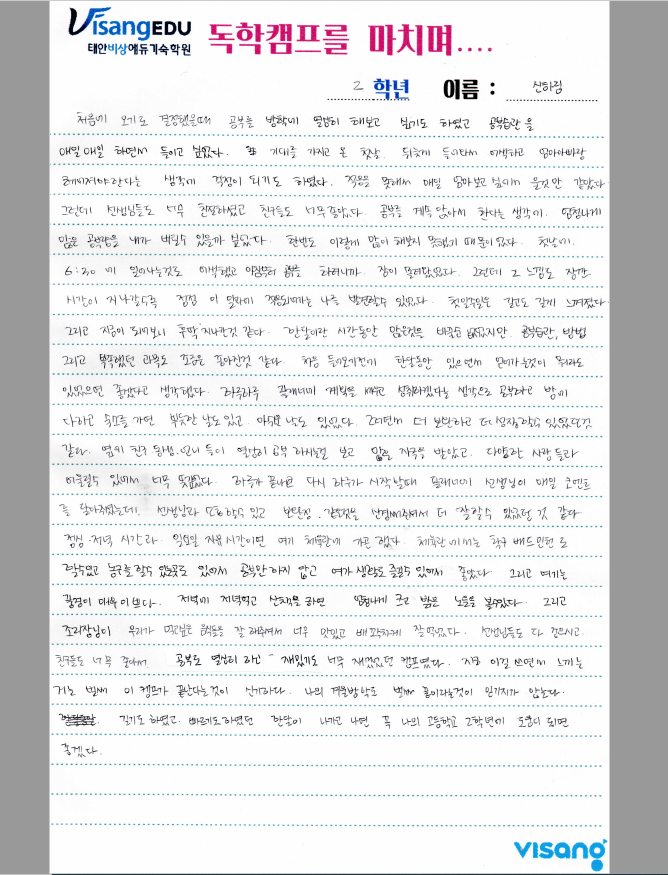 VisangEDU
태안비상에듀기숙학원
독학캠프를 마치며....
2 학년 이름 : 신하림
처음에 오기로 결정했을때 공부를 방학에 열심히 해보고 싶기도 하였고 공부습관을
매일매일 하면서 들이고 싶었다. 기대를 가지고 온 첫날. 뒤늦게 들어와서 어색하고 엄마아빠랑
헤어져야한다는 생각에 걱정이 되기도 하였다. 적응을 못해서 매일 엄마보고싶어서 울것만 같았다
그런데 선생님들도 너무 친절하셨고 친구들도 너무 좋았다. 공부를 계속 앉아서 한다는 생각에. 엄청나게
많은 공부량을 내가 버틸수 있을까 싶었다. 한번도 이렇게 많이 해보지 못했기 때문이었다. 첫날에.
6:30 에 일어나는것도 어색했고 아침부터 공부를 하려니까. 잠이 몰려왔었다. 그런데 그 느낌도 잠깐
시간이 지나갈수록 점점 이 일과에 적응되어가는 나를 발견할수 있었다. 첫일주일은 길고도 길게 느껴졌다
그리고 지금이 되어보니 후딱 지나간것 같다. 한달이란 시간동안 많은것을 바꿀순 없었지만. 공부습관, 방법
그리고 부족했던 과목도 조금은 좋아진것 같다. 처음 들어오기전에 한달동안 있으면서 얻어가는것이 뭐라도
있었으면 좋겠다고 생각했다. 하루하루 플래너에 계획을 세우고 성취하겠다는 생각으로 공부하고 밤에
다하고 숙소를 가면 뿌듯한 날도 있고. 아쉬운 날도 있었다. 그러면서 더 보완하고 더 성장할수 있었던것
같다. 옆의 친구 동생.언니 들이 열심히 공부 하시는걸 보고 많은 자극을 받았고. 다양한 사람들과
어울릴수 있어서 너무 뜻깊었다. 하루가 끝나고 다시 하루가 시작날때 플래너에 선생님이 매일 코멘트
를 달아주셨는데. 선생님과 소통할수 있고 보완점. 같은것을 설명해주셔서 더 잘할수 있었던 것 같다
점심 저녁 시간과. 일요일 자유시간이면 여기 체육관에 가곤 했다. 체육관에서는 탁구 배드민턴 도
할수있고 농구도 할수 있는곳도 있어서 공부만 하지 않고 여가 생활도 즐길수 있어서 좋았다 그리고 여기는
풍경이 매우 이쁘다. 저녁에 저녁먹고 산책을 하면 엄청나게 크고 밝은 노을을 볼수있다. 그리고
조리장님이 우리가 먹고싶은 음식들을 잘 해주셔서 너무 맛있고 배부르게 잘먹었다. 선생님들도 다 좋으시고.
친구들도 너무 좋아서. 공부도 열심히 하고 재밌기도 너무 재밌었던 캠프였다. 지금 이걸 쓰면서 느끼는
거는 벌써 이 캠프가 끝난다는것이 신기하다. 나의 겨울방학도 벌써 끝이라는것이 믿기지가 않는다.
길기도 하였고. 빠르기도하였던 한달이 나가고 나면 꼭 나의 고등학교 2학년에 도움이 되면
좋겠다.
visang